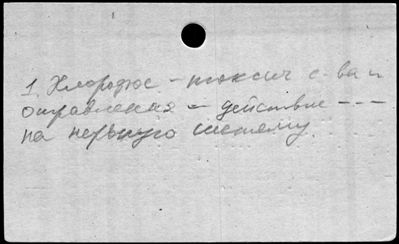 1. Хлорофос – токсич с-ва и
отравления – действие - - -
на нервную систему.